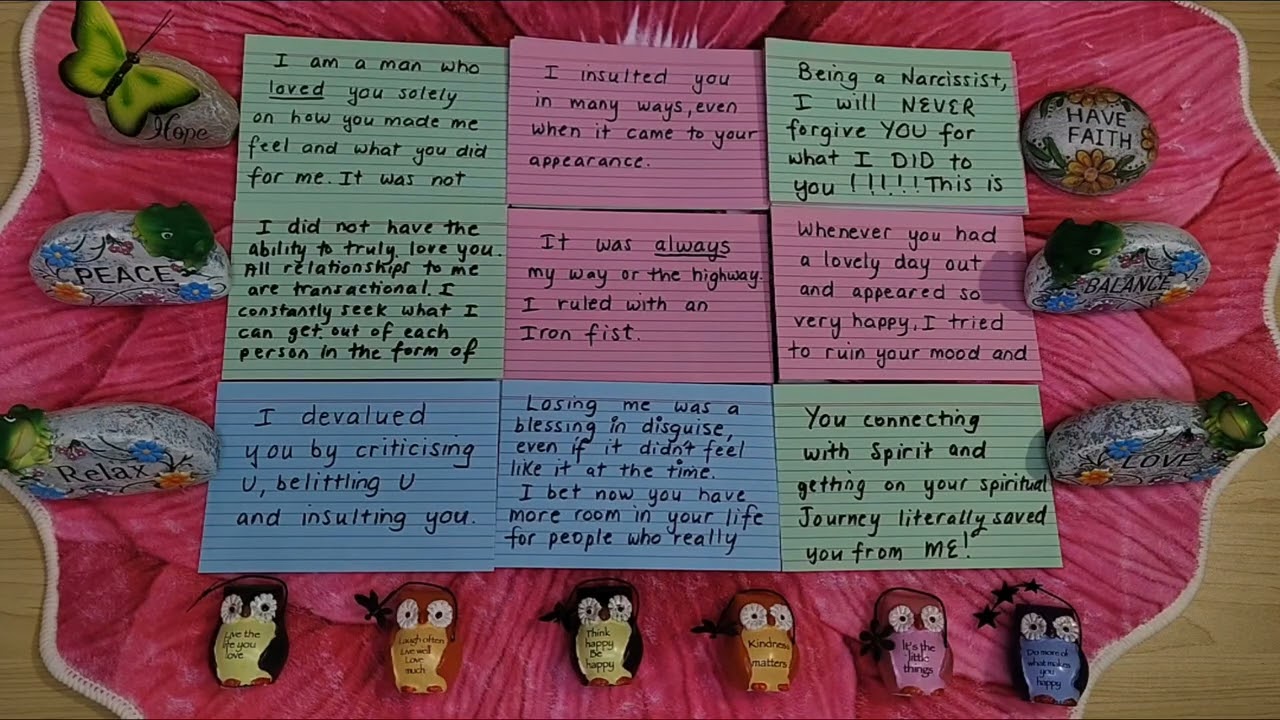 Hope
I am a man who
loved you solely
on how you made me
feel and what you did
for me. It was not
I insulted you
in many ways, even
when it came to your
appearance.
Being a Narcissist,
I will NEVER
forgive YOU for
what I DID to
you !!!!! This is
HAVE
FAITH
PEACE
I did not have the
ability to truly love you.
All relationships to me
are transactional. I
constantly seek what I
can get out of each
person in the form of
It was always
my way or the highway.
I ruled with an
Iron fist.
Whenever you had
a lovely day out
and appeared so
very happy, I tried
to ruin your mood and
BALANCE
Relax
I devalued
you by criticising
U, belittling U
and insulting you.
Losing me was a
blessing in disguise,
even if it didn't feel
like it at the time.
I bet now you have
more room in your life
for people who really
You connecting
with Spirit and
getting on your spiritual
Journey literally saved
you from ME!
LOVE
Live the
life you
love
Laugh often
Live well
Love
much
Think
happy
Be
happy
Kindness
matters
It's the
little
things
Do more of
what makes
you
happy